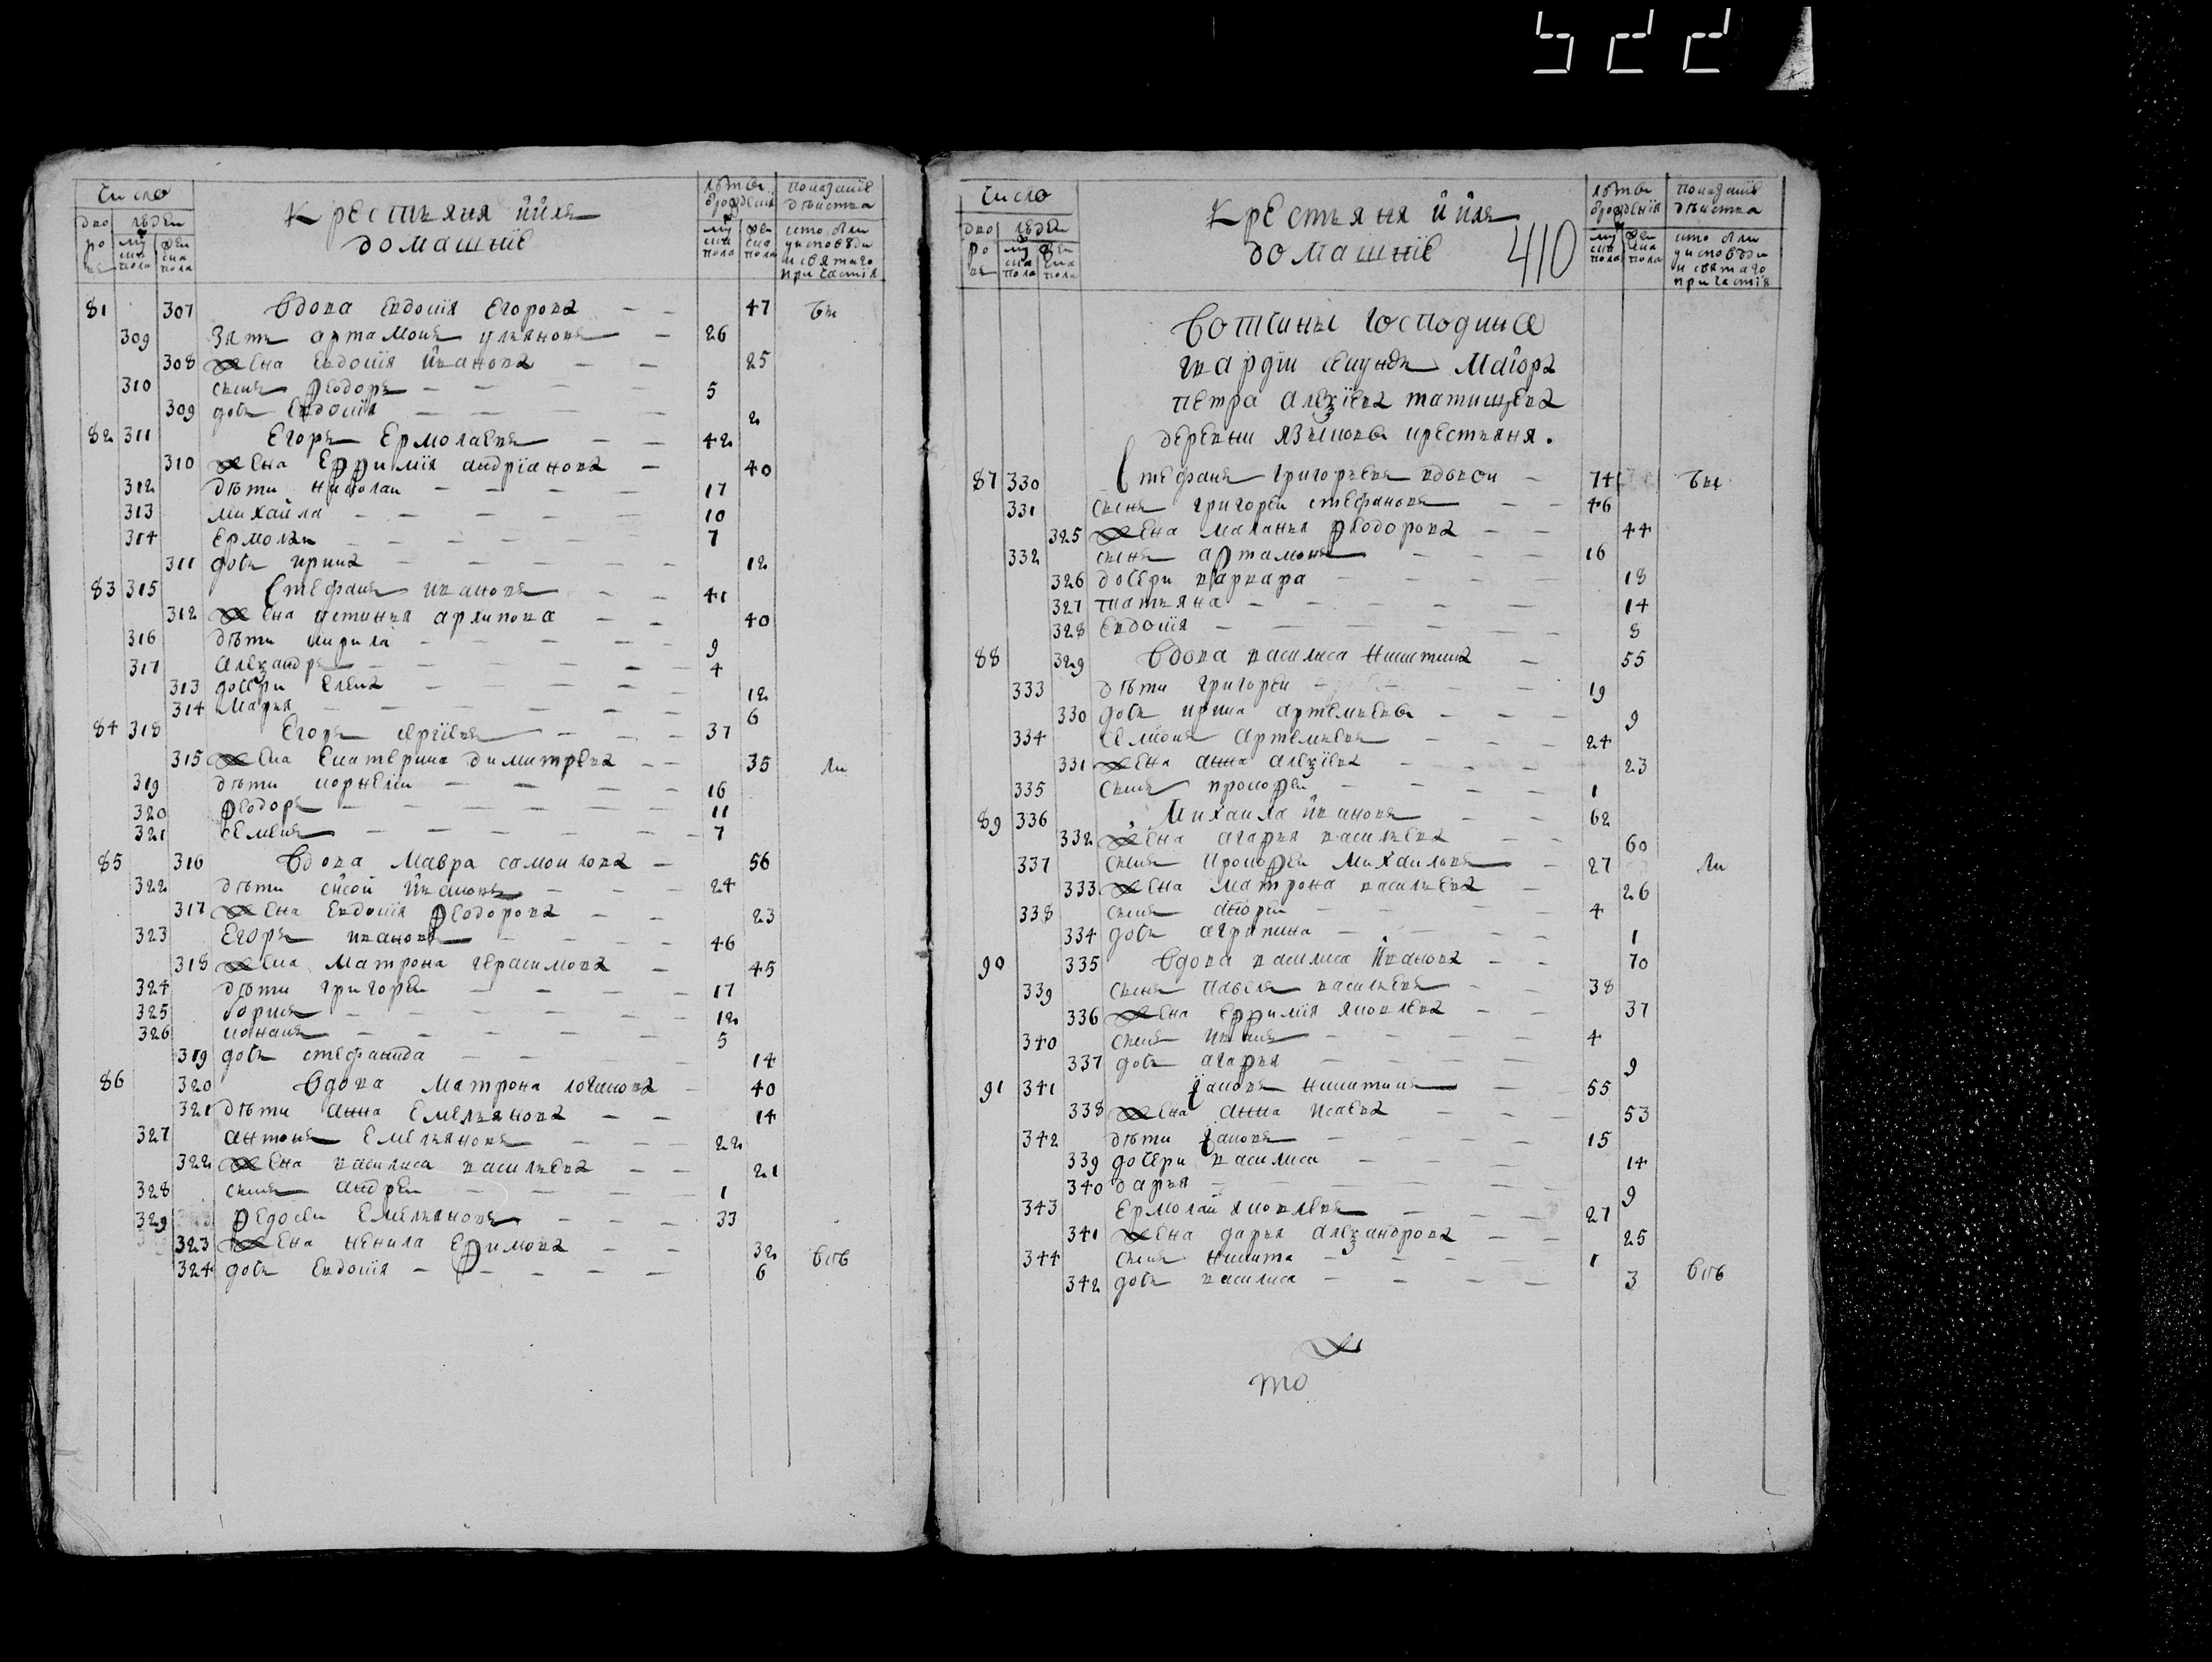 522
Число
Крестьяня ийхъ
домашніе
лѣтъ
ѿрождения
Показаніе
дѣйства
дво
ровъ
людей
муска пола
женска пола
муска пола
женска пола
кто былъ
у исповѣди
и святаго
причастія
81 307 Вдова Евдокія Егорова 47 бы
309 Зять Артамонъ Ульяновъ 26
308 жена Евдокія Иванова 25
310 сынъ Ѳеодоръ 5
309 дочь Евдокія 2
82 311 Егоръ Ермолаевъ 42
310 жена Евѳимія Андріанова 40
312 дѣти Николай 17
313 Михайла 10
314 Ермолай 7
311 дочь Ирина 12
83 315 Стефанъ Ивановъ 41
312 жена Устинья Архипова 40
316 дѣти Кирила 9
317 Алеѯандръ 4
313 дочери Елена 12
314 Марья 6
84 318 Егоръ Сергіевъ 37
315 жена Екатерина Димитрева 35 ли
319 дѣти Корнеліи 16
320 Ѳеодоръ 11
321 Семенъ 7
85 316 Вдова Мавра Самоилова 56
322 дѣти Сисой Ивановъ 24
317 жена Евдокія Ѳеодорова 23
323 Егоръ Ивановъ 46
318 жена Матрона Герасимова 45
324 дѣти Григорей 17
325 Борисъ 12
326 Конанъ 5
319 дочь Стефанида 14
86 320 Вдова Матрона 40
321 дѣти Анна Емельянова 14
327 Антонъ Емельяновъ 22
322 жена Василиса Васильева 21
328 сынъ Андрей 1
329 Ѳедосей Емельяновъ 33
323 жена Ненила Еѳимова 32 всѣ
324 дочь Евдокія 6
Число
Крестьяня ийхъ
домашніе
410
лѣтъ
ѿрожденія
Показаніе
дѣйства
дво
ровъ
людей
муска пола
женска пола
муска пола
женска пола
кто былъ
у исповѣди
и святаго
причастія
Вотчины господина
гвардіи секундъ маіора
Петра Алеѯіева Татищева
деревни Языкова крестьяня.
87 330 Стефанъ Григорьевъ вдовой 74 бы
331 сынъ Григорей Стефановъ 46
325 жена Маланья Ѳеодорова 44
332 сынъ Артамонъ 16
326 дочери Варвара 18
327 Татьяна 14
328 Евдокія 8
88 329 Вдова Василиса Никитина 55
333 дѣти Григорей 19
330 дочь Ирина Артемьева 9
334 Семионъ Артемьевъ 24
331 жена Анна Алеѯіева 23
335 сынъ Прокоѳей 1
89 336 Михаила Ивановъ 62
332 жена Агаѳья Васильева 60
337 сынъ Прокоѳей Михаиловъ 27 ли
333 жена Матрона Васильева 26
338 сынъ Андрей 4
334 дочь Агрипина 1
90 335 Вдова Василиса Иванова 70
339 сынъ Павелъ Васильевъ 38
336 жена Еѳѳимія Яковлева 37
340 сынъ Иванъ 4
337 дочь Агаѳья 9
91 341 Яковъ Никитинъ 55
338 жена Анна Исаева 53
342 дѣти Яковъ 15
339 дочери Василиса 14
340 Дарья 9
343 Ермолай Яковлевъ 27
341 жена Дарья Алеѯандрова 25
344 сынъ Никита 1
342 дочь Василиса 3 всѣ
то